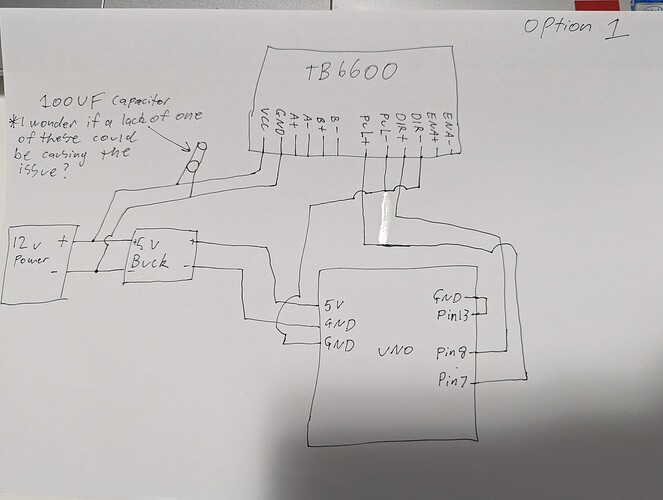 Option 1
TB6600
VCC
GND
A+
A-
B+
B-
PUL+
PUL-
DIR+
DIR-
ENA+
ENA-
100UF capacitor
*I wonder if a lack of one
of these could
be causing the
issue?
12v +
Power
-
+5V +
Buck
- -
5V
GND
GND
UNO
GND
Pin13
Pin8
Pin7